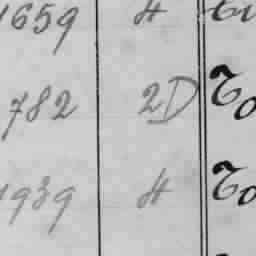 1659 H
782 2D To
1939 H To